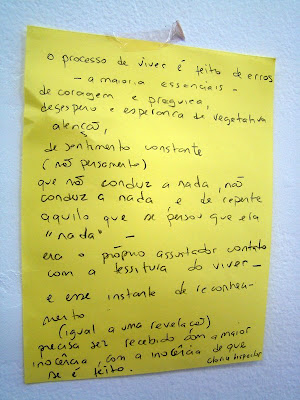 o processo de viver é feito de erros
- a maioria essenciais -
de coragem e preguiça,
desespero e esperança de vegetativa
atenção,
de sentimento constante
(não pensamento)
que não conduz a nada, não
conduz a nada e de repente
aquilo que se pensou que era
"nada" -
era o próprio assustador contato
com a tessitura do viver -
e esse instante de reconheci-
mento
(igual a uma revelação)
precisa ser recebido com a maior
inocência, com a inocência de que
se é feito.
clarice lispector